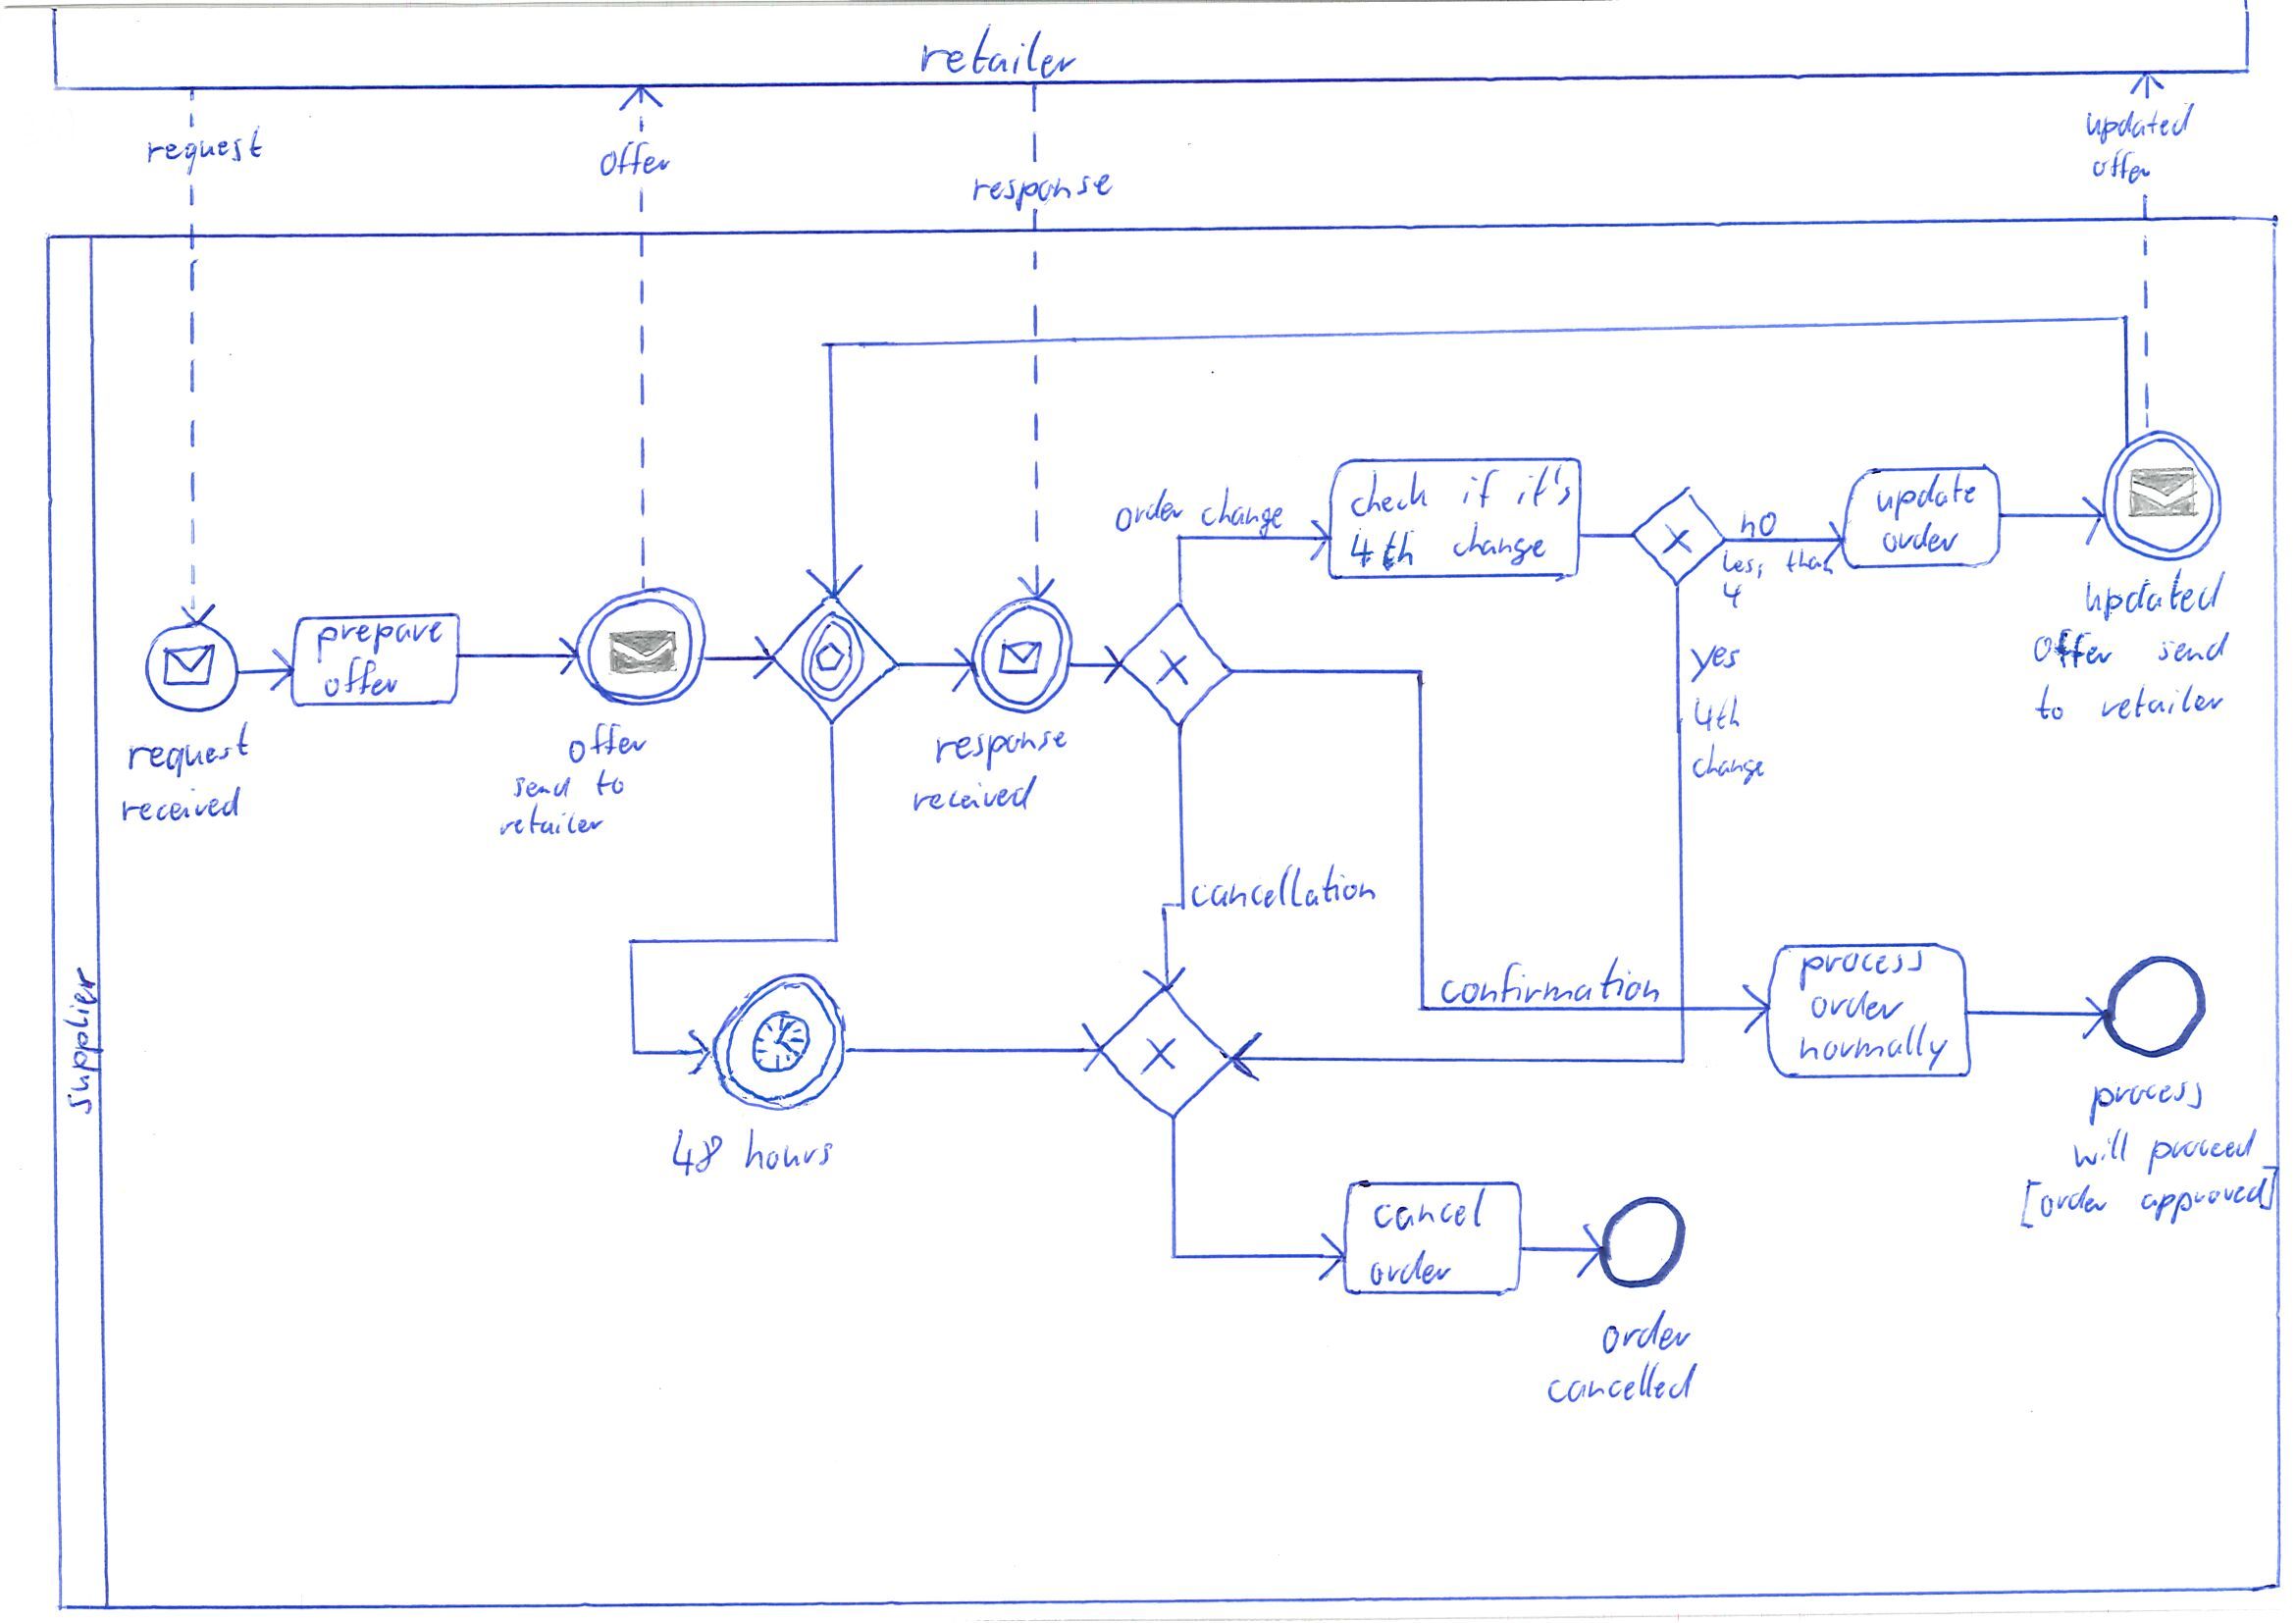 retailer
request
offer
response
updated
offer
Supplier
request
received
prepare
offer
offer
send to
retailer
response
received
order change
check if it's
4th change
no
less than
4
yes
4th
change
update
order
updated
offer send
to retailer
cancellation
confirmation
48 hours
process
order
normally
process
will proceed
[order approved]
cancel
order
order
cancelled